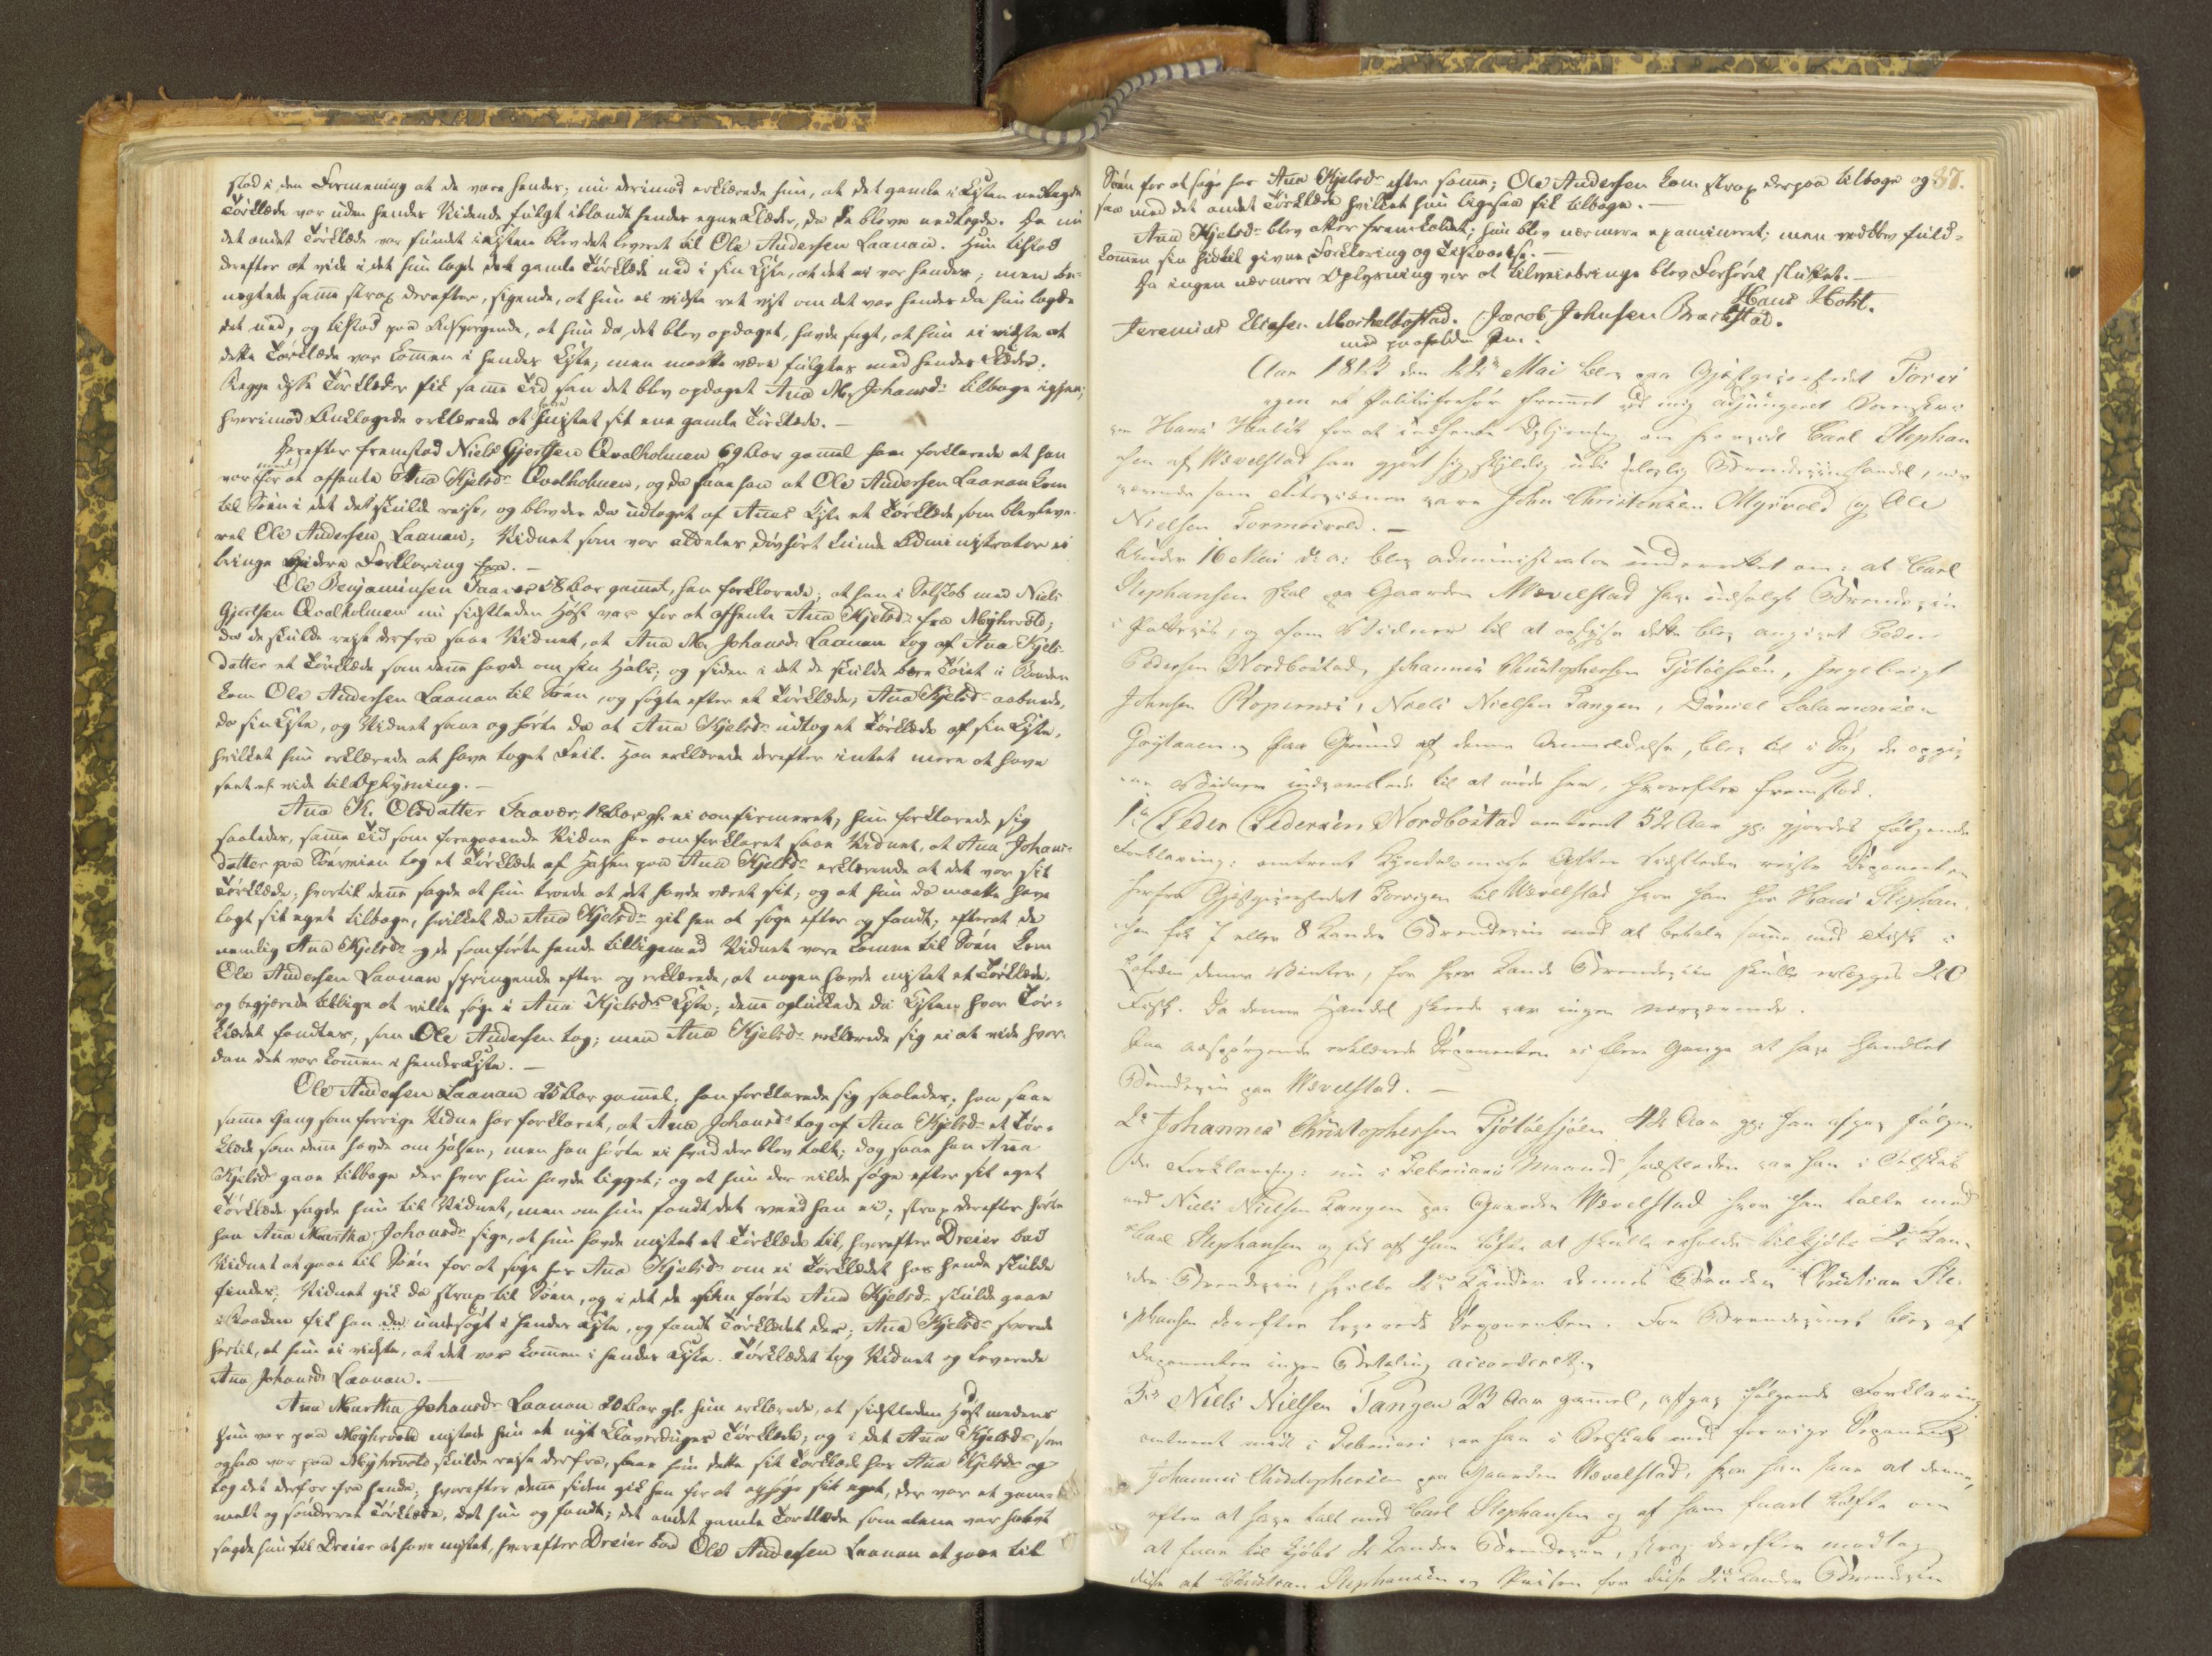 stod i den Formening at de vare hendes; nu derimod erklærede hun, at det gamle i Kisten nedlagde
Tørklæde var uden hendes Vidende fulgt iblandt hendes egne Klæder, da de bleve nedlagde. Da nu
det andet Tørklæde var fundet i Kisten blev det leveret til Ole Andersen Laanan. Hun tilstod
derefter at vide i det hun lagde det gamle Tørklæde ned i sin Kiste, at det ei var hendes; men be-
nægtede samme strax derefter, sigende, at hun ei vidste ret vist om det var hendes da hun lagde
det ned, og tilstod paa Tilspørgende, at hun da det blev opdaget, havde sagt, at hun ei vidste at
dette Tørklæde var kommen i hendes Kiste, men maatte være fulgtes med hendes Klæder.
Begge disse Tørklæder fik samme Tid som det blev opdaget Ana M. Johansdr tilbage igjen;
hvorimod Andtagede erklærede at have mistet sit ene gamle Tørklæde. —
Derefter fremstod Niels Gjertsen Qvalholmen 69 Aar gammel som forklarede at han
var med for at afhente Ana Kjelsdr Qvalholmen, og da saae han at Ole Andersen Laanan kom
til Søen i det de skulde reise, og blev der da udtaget af Anas Kiste et Tørklæde som blev leve-
ret Ole Andersen Laanan; Vidnet som var aldeles døvhørt kunde Administrator ei
bringe videre Forklaring fra. —
Ole Benjaminsen Faavær 58 Aar gammel, han forklarede; at han i Selskab med Niels
Gjertsen Qvalholmen nu sidstleden Høst var for at afhente Ana Kjelsdr fra Myhrvold;
da de skulde reise derfra saae Vidnet, at Ana M. Johansdr Laanan tog af Ana Kjels-
datter et Tørklæde som denne havde om sin Hals; og siden i det de skulde bære Tøiet i Baaden
kom Ole Andersen Laanan til Søen, og søgte efter et Tørklæde; Ana Kjelsdr aabnede
da sin Kiste, og Vidnet saae og hørte da at Ana Kjelsdr udtog et Tørklæde af sin Kiste,
hvilket hun erklærede at have taget Feil. Han erklærede derefter intet mere at have
seet el. vide til Oplysning. —
Ana K. Olsdatter Faavær, 18 Aar gl. ei confirmeret, hun forklarede sig
saaledes, samme Tid som foregaaende Vidne har omforklaret saae Vidnet, at Ana Johans-
datter paa Tørvmien tog et Tørklæde af Halsen paa Ana Kjelsdr erklærende at det var sit
Tørklæde; hvortil denne sagde at hun troede at det havde været sit, og at hun da maatte have
lagt sit eget tilbage, hvilket da Ana Kjelsdr gik hen at søge efter og fandt; efterat de
nemlig Ana Kjelsdr og de som førte hende tilligemed Vidnet vare komne til Søen kom
Ole Andersen Laanan springende efter og erklærede, at nogen havde mistet et Tørklæde,
og begjærede tillige at ville søge i Ana Kjelsdrs Kiste; denne oplukkede da Kisten hvor Tør-
klædet fandtes, som Ole Andersen tog; men Ana Kjelsdr erklærede sig ei at vide hvor-
dan det var kommen i hendes Kiste. —
Ole Andersen Laanan 25 Aar gammel. han forklarede sig saaledes; han saae
samme Gang som forrige Vidne har forklaret, at Ana Johansdr tog af Ana Kjelsdr et Tør-
klæde som denne havde om Halsen, men han hørte ei hvad der blev talt; dog saae han Ana
Kjelsdr gaae tilbage der hvor hun havde ligget; og at hun der vilde søge efter sit eget
Tørklæde sagde hun til Vidnet, men om hun fandt det veed han ei; strax derefter hørte
han Ana Martha Johansdr sige, at hun havde mistet et Tørklæde til, hvorefter Dreier bad
Vidnet at gaae til Søen for at søge hos Ana Kjelsdr om ei Tørklædet hos hende skulde
findes; Vidnet gik da strax til Søen, og i det de som førte Ana Kjelsdr skulde gaae
i Baaden fik han da undersøgt i hendes Kiste, og fandt Tørklædet der; Ana Kjelsdr svarede
hertil, at hun ei vidste, at det var kommen i hendes Kiste. Tørklædet tog Vidnet og leverede
Ana Johansdr Laanan. —
Ana Martha Johansdr Laanan 20 Aar gl. hun erklærede, at sidstleden Høst medens
hun var paa Myhrvold mistede hun et nyt Klaverduges Tørklæde; og i det Ana Kjelsdr som
ogsaa var paa Myhrvold skulde reise derfra, saae hun dette sit Tørklæde hos Ana Kjelsdr og
tog det derfor fra hende; hvorefter denne siden gik hen for at opsøge sit eget, der var et gam-
melt og sønderrevet Tørklæde, det hun og fandt; det andet gamle Tørklæde som alene var halvt
sagde hun til Dreier at have mistet, hvorefter Dreier bad Ole Andersen Laanan at gaae til
87.
Søen for at søge hos Ana Kjelsdr efter samme; Ole Andersen kom strax derpaa tilbage og
saa med det andet Tørklæde hvilket hun ligesaa fik tilbage. —
Ana Kjelsdr blev atter fremkaldet; hun blev nærmere examineret; men vedblev fuld-
kommen sin hidtil givne Forklaring og Tilstaaelse. —
Da ingen nærmere Oplysning var at tilveiebringe blev Forhøret sluttet. —
Hans Holst.
Jeremias Eliasen Marhelbostad. Jacob Johnsen Brækstad.
med paaholden Pen.
Aar 1823 den 22de Mai blev paa Gjæstgiverstedet Forvi
igen et Politieforhør fremmet ved mig adjungeret Sorenskri-
ver Hans Holst for at indhente Oplysning om hvorvidt Carl Stephan
sen af Wævelstad har gjort sig skyldig udi ulovlig Brændeviinshandel, nær
værende som Laugrettesmænd vare John Christensen Myrvold og Ole
Nielsen Formoivold. —
Under 16 Mai d: a: blev administrator underrettet om: at Carl
Stephansen skal paa Gaarden Wævelstad have udsolgt Brændeviin
i Pottevis, og som Vidner til at oplyse dette blev angivet Peder
Pedersen Nordbostad, Johannes Christophersen Tjøtøesjøen, Ingebrigt
Johnsen Ropernes, Niels Nielsen Tangen, Daniel Salamonsen
Grytaaen og paa Grund af denne Anmeldelse, blev til i Dag de opgiv
ne Vidner indvarslede til at møde her, hvorefter fremstod.
1te Peder Pedersen Nordbostad omtrent 52 Aar gl. gjorde følgende
Forklaring: omtrent Kyndelsmisse Aften sidstleden reiste Deponenten
herfra Gjæstgiverstedet Forvigen til Wævelstad hvor han hos Hans Stephan
sen fik 7 eller 8 Kander Brændeviin mod at betale samme med Fisk i
Lofoden denne Vinter, for hver Kande Brændeviin skulle erlægges 20
Fisk. Da denne Handel skeede var ingen nærværende.
Paa Adspørgende erklærede Deponenten ei flere Gange at have handlet
Brændeviin paa Wævelstad. —
2. Johannes Christophersen Tjøtøesjøen 42 Aar gl. han afgav følgen
de Forklaring: nu i Februari Maaned sidstleden var han i Selskab
med Niels Nielsen Tangen paa Gaarden Wævelstad hvor han talte med
Carl Stephansen og fik af ham Løfte at skulle erholde tilkjøbs 2 Kan-
der Brændeviin, hvilke 2 Kander dennes Broder Christian Ste-
phansen derefter leverede Deponenten. For Brændevinet blev af
Deponenten ingen Betaling accorderet.
3de Niels Nielsen Tangen 23 Aar gammel, afgav følgende Forklaring
omtrent midt i Februari var han i Selskab med forrige Deponent
Johannes Christophersen paa Gaarden Wævelstad, hvor han saae at denne,
efter at have talt med Carl Stephansen og af ham faaet Løfte om
at faae til kjøbs 2 Kander Brændeviin, strax derefter modtog
disse af Christian Stephansen og Prisen for disse 2 Kander Brændeviin